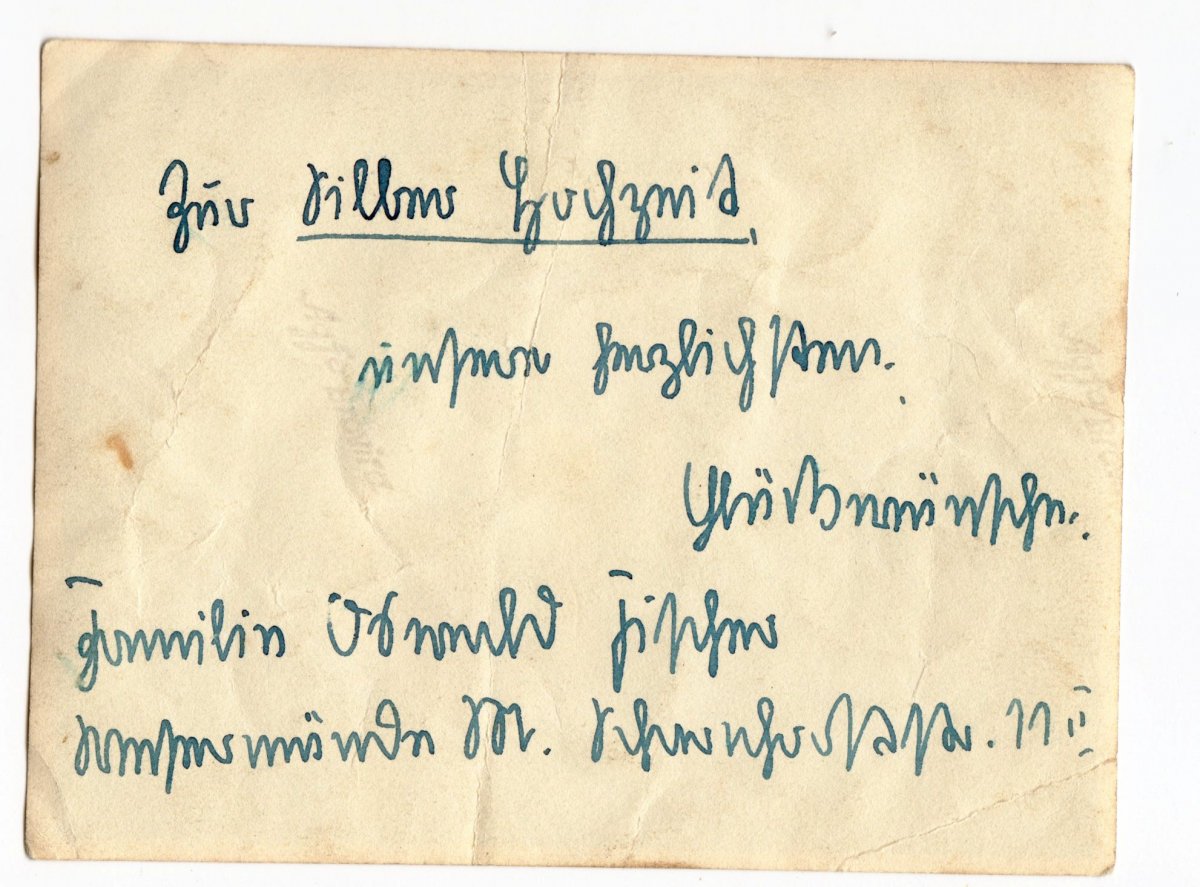 Zur Silber Hochzeit.
unsere herzlichsten.
Glückwünsche.
Familie Oswald Fischer
Wesermünde Scharnhorststr. 11 II